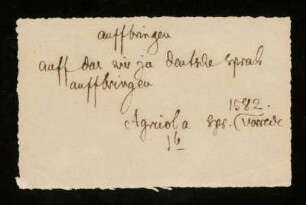 auffbringen
auff das wir ja deutsche sprach
auffbringen
1582.
Agricola Spr. (Vorrede
1b